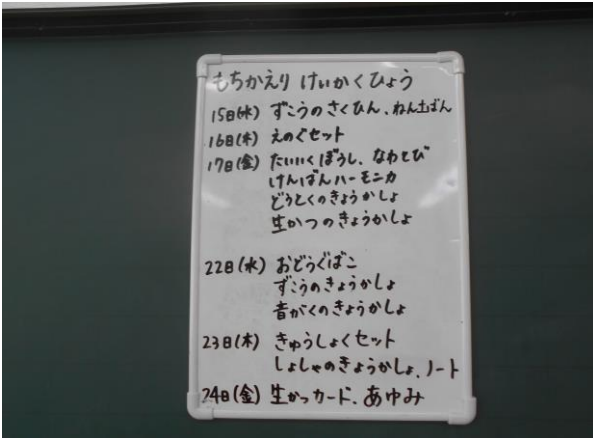 もちかえり けいかくひょう
15日(水) ずこうのさくひん、ねん土ばん
16日(木) えのぐセット
17日(金) たいいくぼうし、なわとび
けんばんハーモニカ
どうとくのきょうかしょ
生かつのきょうかしょ
22日(水) おどうぐばこ
ずこうのきょうかしょ
音がくのきょうかしょ
23日(木) きゅうしょくセット
しょしゃのきょうかしょ、ノート
24日(金) 生かつカード、あゆみ